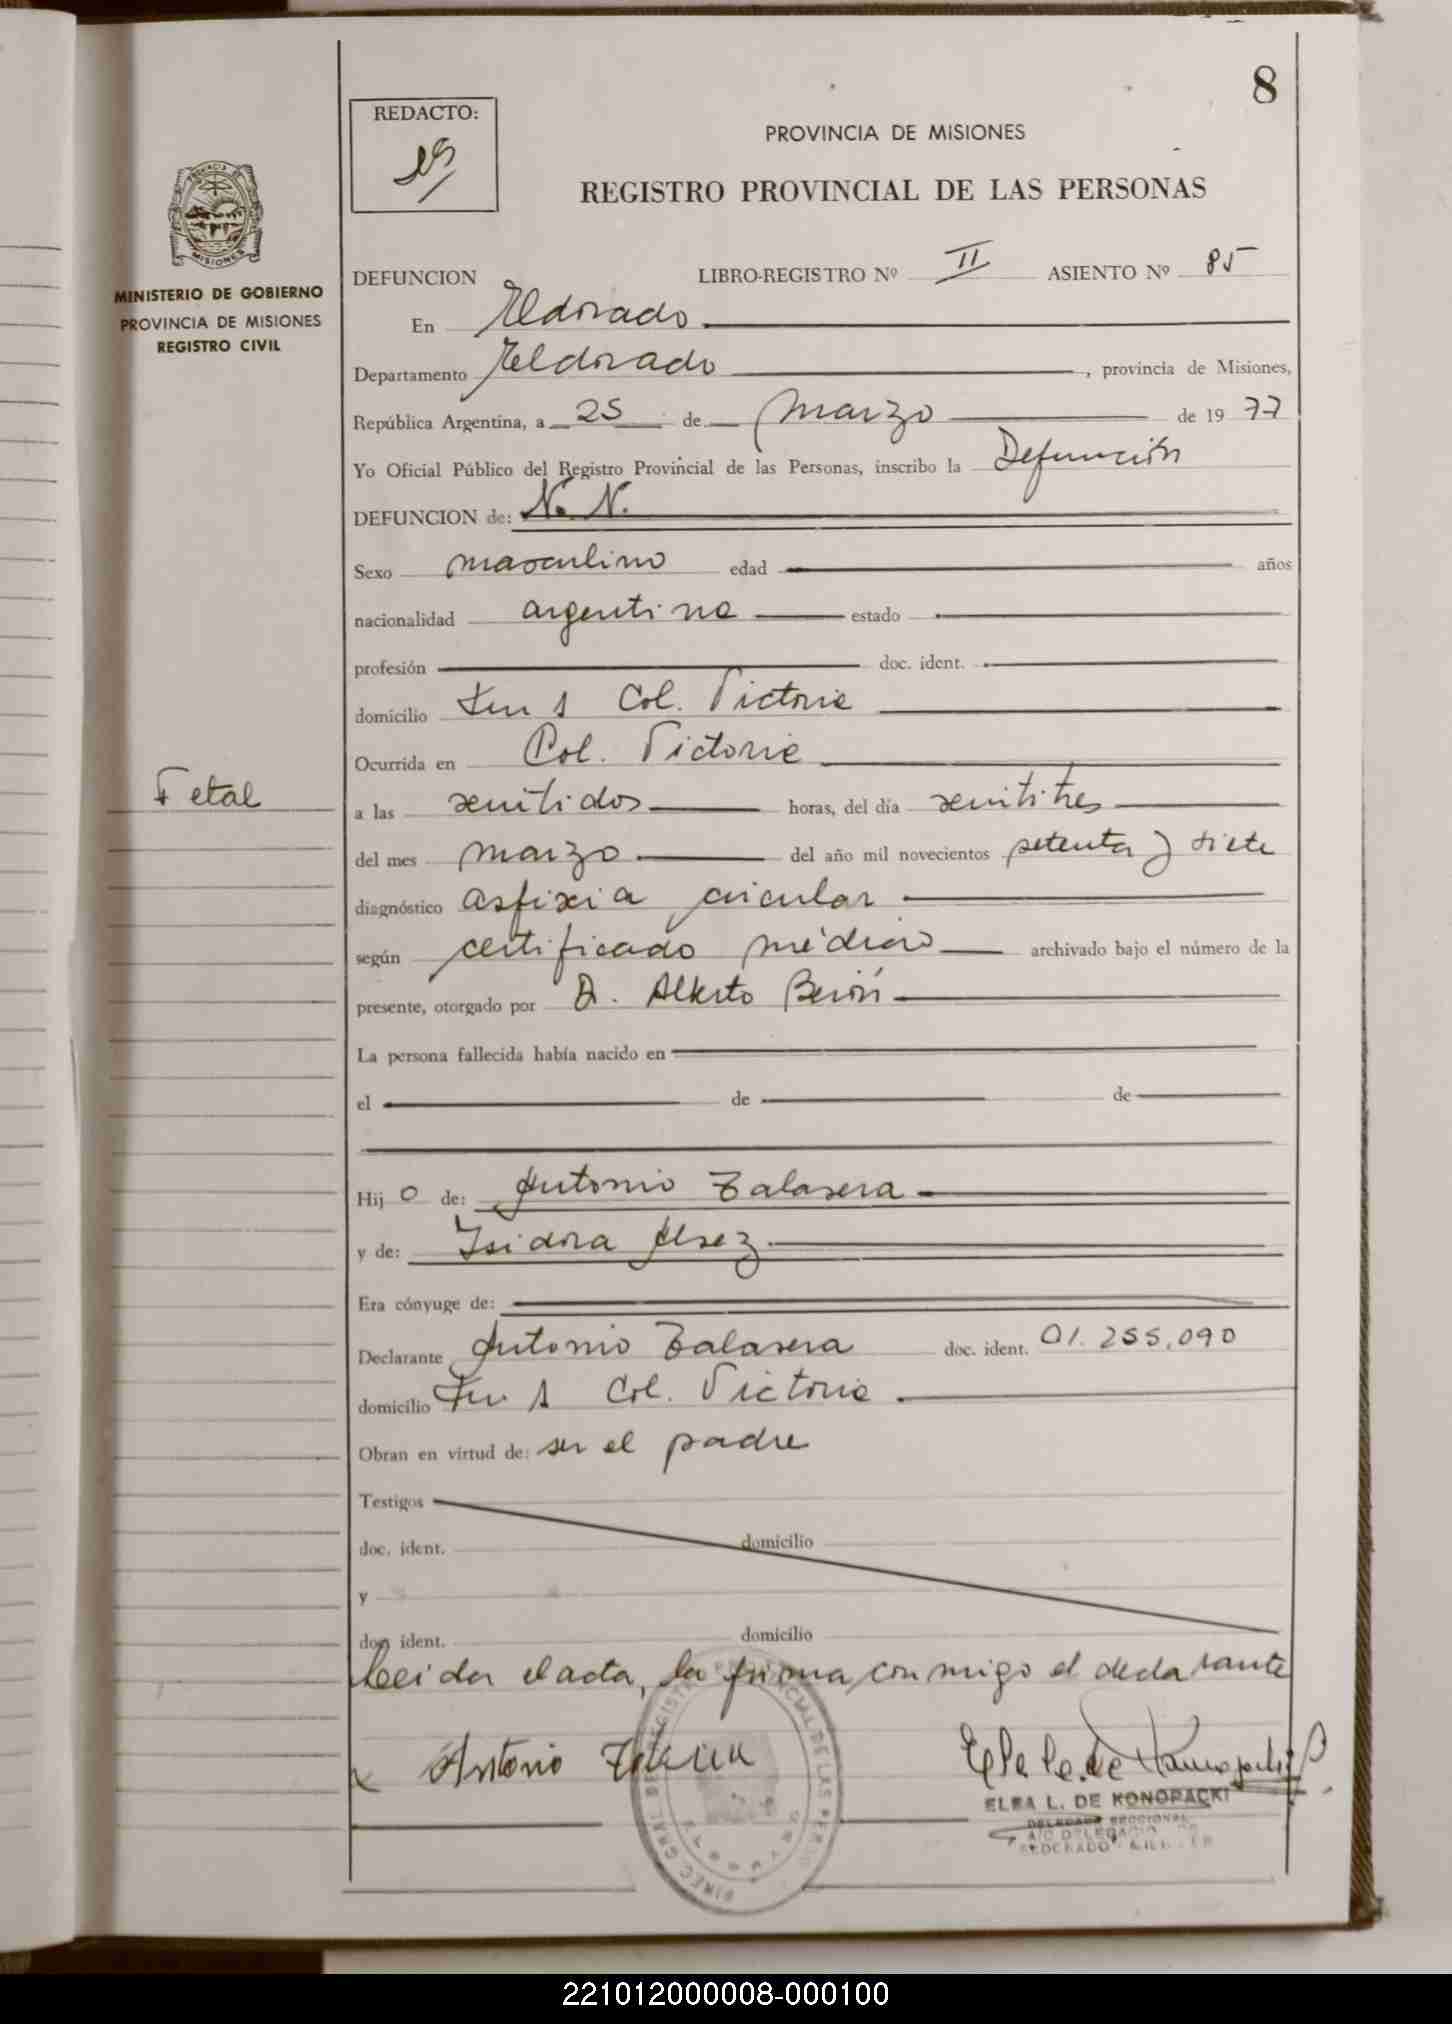 8
REDACTO:
PROVINCIA DE MISIONES
REGISTRO PROVINCIAL DE LAS PERSONAS
MINISTERIO DE GOBIERNO
PROVINCIA DE MISIONES
REGISTRO CIVIL
DEFUNCION LIBRO-REGISTRO Nº II ASIENTO Nº 85
En Eldorado
Departamento Eldorado, provincia de Misiones,
República Argentina, a 25 de marzo de 1977
Yo Oficial Público del Registro Provincial de las Personas, inscribo la Defunción
DEFUNCION de: N. N.
Sexo masculino edad años
nacionalidad argentina estado
profesión doc. ident.
domicilio Km 1 Col. Victoria
Ocurrida en Col. Victoria
Fetal
a las veintidos horas, del día veintitres
del mes marzo del año mil novecientos setenta y siete
diagnóstico asfixia circular
según certificado médico archivado bajo el número de la
presente, otorgado por D. Alberto
La persona fallecida había nacido en
el de de
Hijo de: Antonio Talavera
y de: Isidora
Era cónyuge de:
Declarante Antonio Talavera doc. ident. 01.255.090
domicilio Km 1 Col. Victoria
Obran en virtud de: ser el padre
Testigos
doc. ident. domicilio
y
doc. ident. domicilio
Leida el acta, la firma conmigo el declarante
Antonio
ELBA L. DE KONOPACKI
221012000008-000100